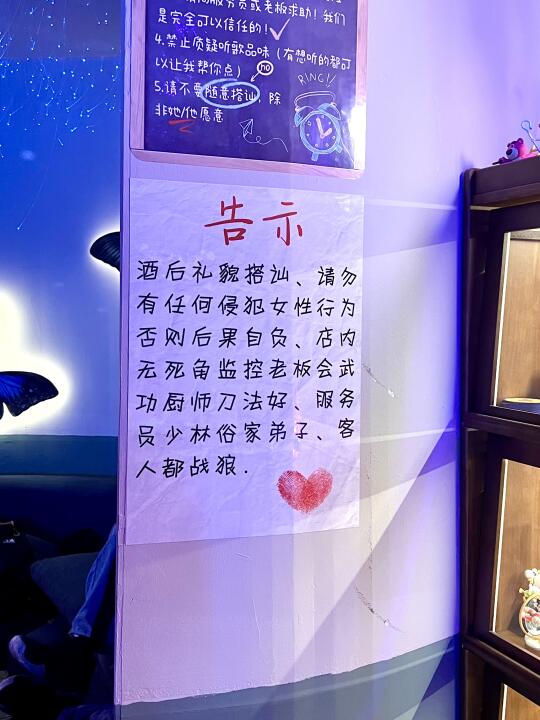 服务员或老板求助！我们
是完全可以信任的！
4.禁止质疑听歌品味（有想听的都可
以让我帮你点）
no
5.请不要随意搭讪，除
非她/他愿意
RING!!
告示
酒后礼貌搭讪、请勿
有任何侵犯女性行为
否则后果自负、店内
无死角监控老板会武
功厨师刀法好、服务
员少林俗家弟子、客
人都战狼.